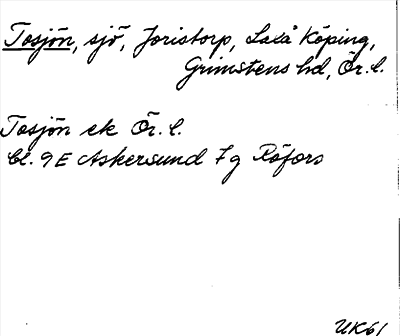 Tosjön, sjö, Joristorp, Laxå Köping,
Grimstens hd, Ör. l.
Tosjön ek Ör. l.
bl. 9E Askersund 7g Röfors
UK61